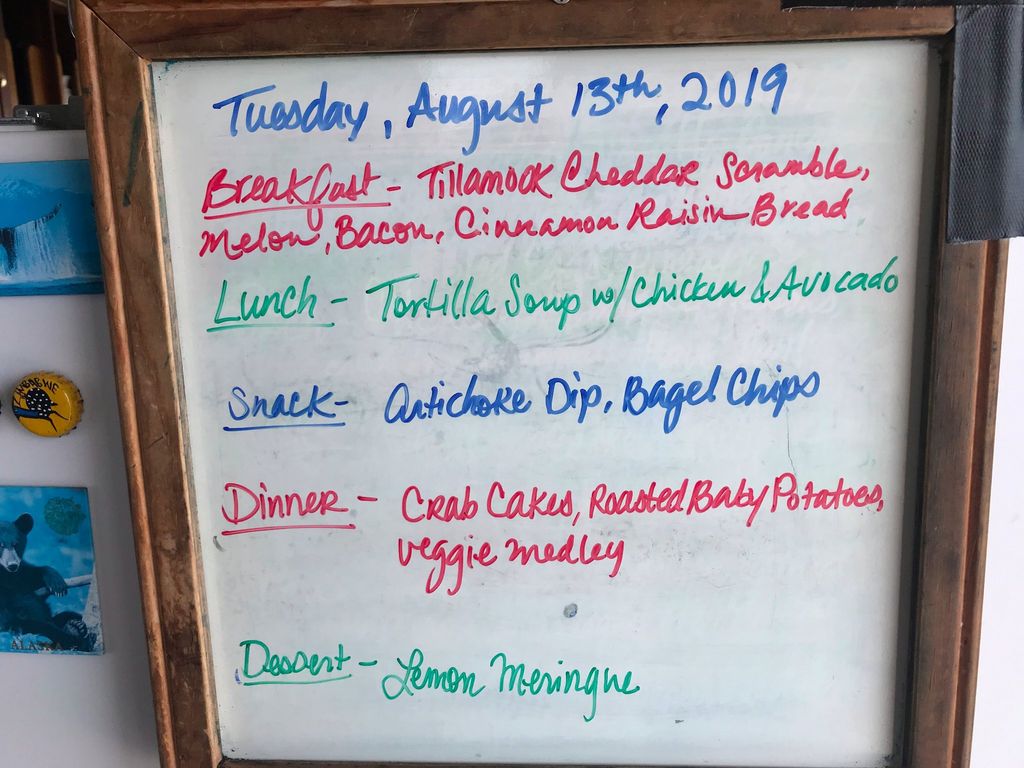 Tuesday, August 13th, 2019
Breakfast - Tillamook Cheddar Scramble,
Melon, Bacon, Cinnamon Raisin Bread
Lunch - Tortilla Soup w/ Chicken & Avocado
Snack - Artichoke Dip, Bagel Chips
Dinner - Crab Cakes, Roasted Baby Potatoes,
veggie medley
Dessert - Lemon Meringue
ALASKA